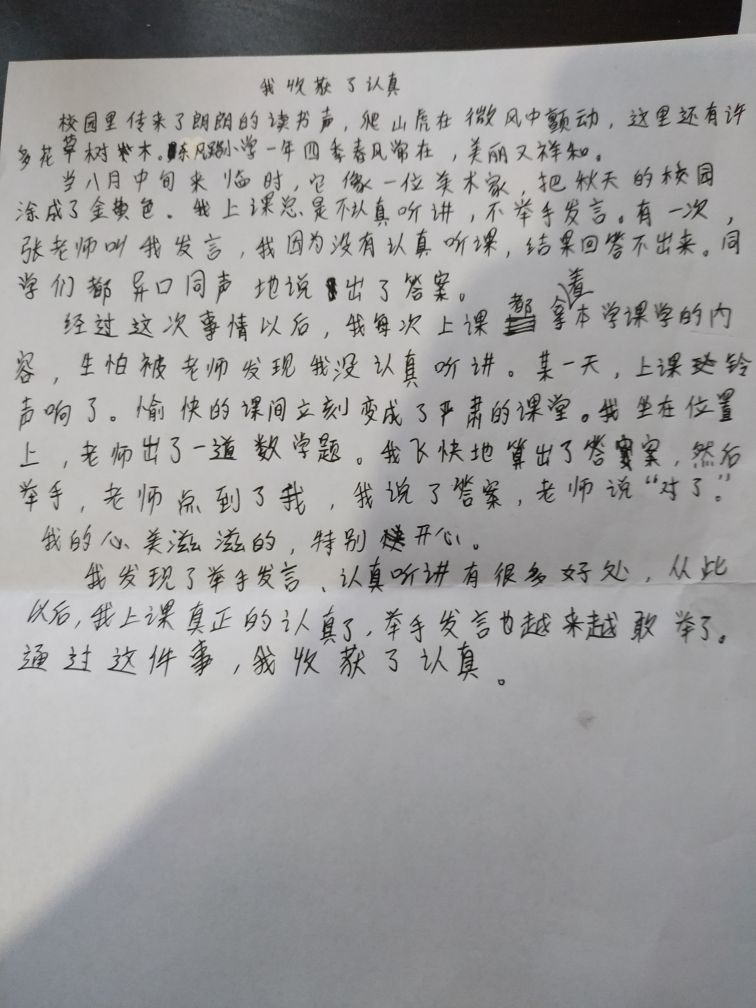 我收获了认真
校园里传来了朗朗的读书声，爬山虎在微风中颤动，这里还有许
多花草树木。东风路小学一年四季春风常在，美丽又祥和。
当八月中旬来临时，它像一位美术家，把秋天的校园
涂成了金黄色。我上课总是不认真听讲，不举手发言。有一次，
张老师叫我发言，我因为没有认真听课，结果回答不出来。同
学们都异口同声地说出了答案。
经过这次事情以后，我每次上课都拿着本学课学的内
容，生怕被老师发现我没认真听讲。某一天，上课铃
声响了。愉快的课间立刻变成了严肃的课堂。我坐在位置
上，老师出了一道数学题。我飞快地算出了答案，然后
举手，老师点到了我，我说了答案，老师说“对了。”
我的心美滋滋的，特别开心。
我发现了举手发言、认真听讲有很多好处，从此
以后，我上课真正的认真了，举手发言也越来越敢举了。
通过这件事，我收获了认真。